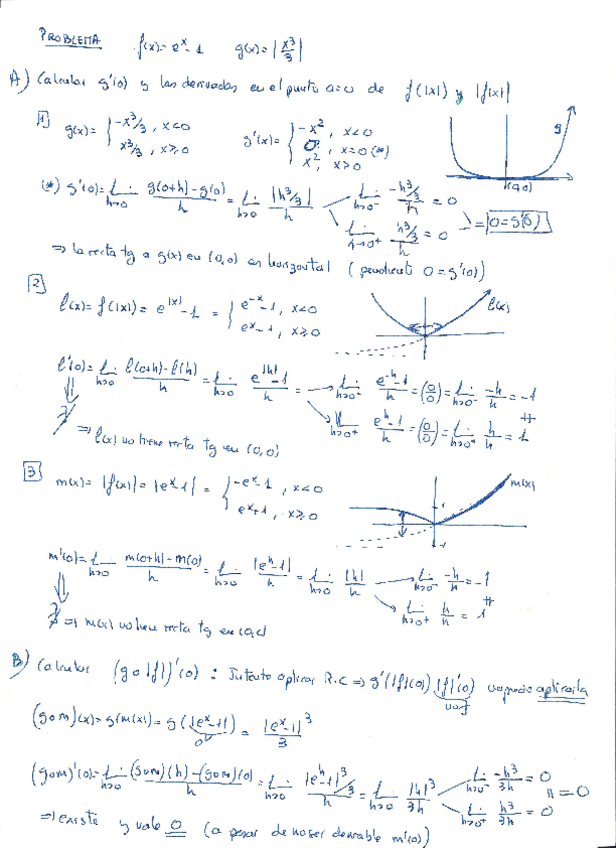 PROBLEMA f(x)= e^x - 1 g(x)= |x^3/3|
A) Calcular g'(0) y las derivadas en el punto a=0 de f(|x|) y |f(x)|
1 g(x)= { -x^3/3, x<0 g'(x)= { -x^2, x<0
x^3/3, x≥0 0, x=0 (*)
x^2, x>0
g
(*) g'(0)= L h→0 g(0+h)-g(0)/h = L h→0 |h^3/3|/h L h→0- -h^3/3/h = 0
L h→0+ h^3/3/h = 0 => 0=g'(0)
⇒ la recta tg a g(x) en (0,0) es horizontal (pendiente 0=g'(0))
2
l(x)= f(|x|)= e^|x| - 1 = { e^-x - 1, x<0
e^x - 1, x≥0
l(x)
l'(0)= L h→0 l(0+h)-l(h)/h = L h→0 e^|h|-1/h = → L h→0- e^-h-1/h = (0/0) = L h→0- -h/h = -1
L h→0+ e^h-1/h = (0/0) = L h→0+ h/h = 1
∄ ⇒ l(x) no tiene recta tg en (0,0)
3
m(x)= |f(x)| = |e^x-1| = { -e^x-1, x<0
e^x+1, x≥0
m(x)
1
-1
m'(0)= L h→0 m(0+h)-m(0)/h = L h→0 |e^h-1|/h = L h→0 |h|/h → L h→0- -h/h = -1
L h→0+ h/h = 1
∄ ⇒ m(x) no tiene recta tg en (0,0)
B) Calcular (g o |f|)'(0) : Intento aplicar R.C ⇒ g'(|f|(0)) |f|'(0) no puedo aplicarla
(g o m)(x)= g(m(x))= g(|e^x-1|) = |e^x-1|^3/3
(g o m)'(0)= L h→0 (g o m)(h)-(g o m)(0)/h = L h→0 |e^h-1|^3/3/h = L h→0 |h|^3/3h L h→0- -h^3/3h = 0
L h→0+ h^3/3h = 0 = 0
⇒ existe y vale 0 (a pesar de no ser derivable m'(0))